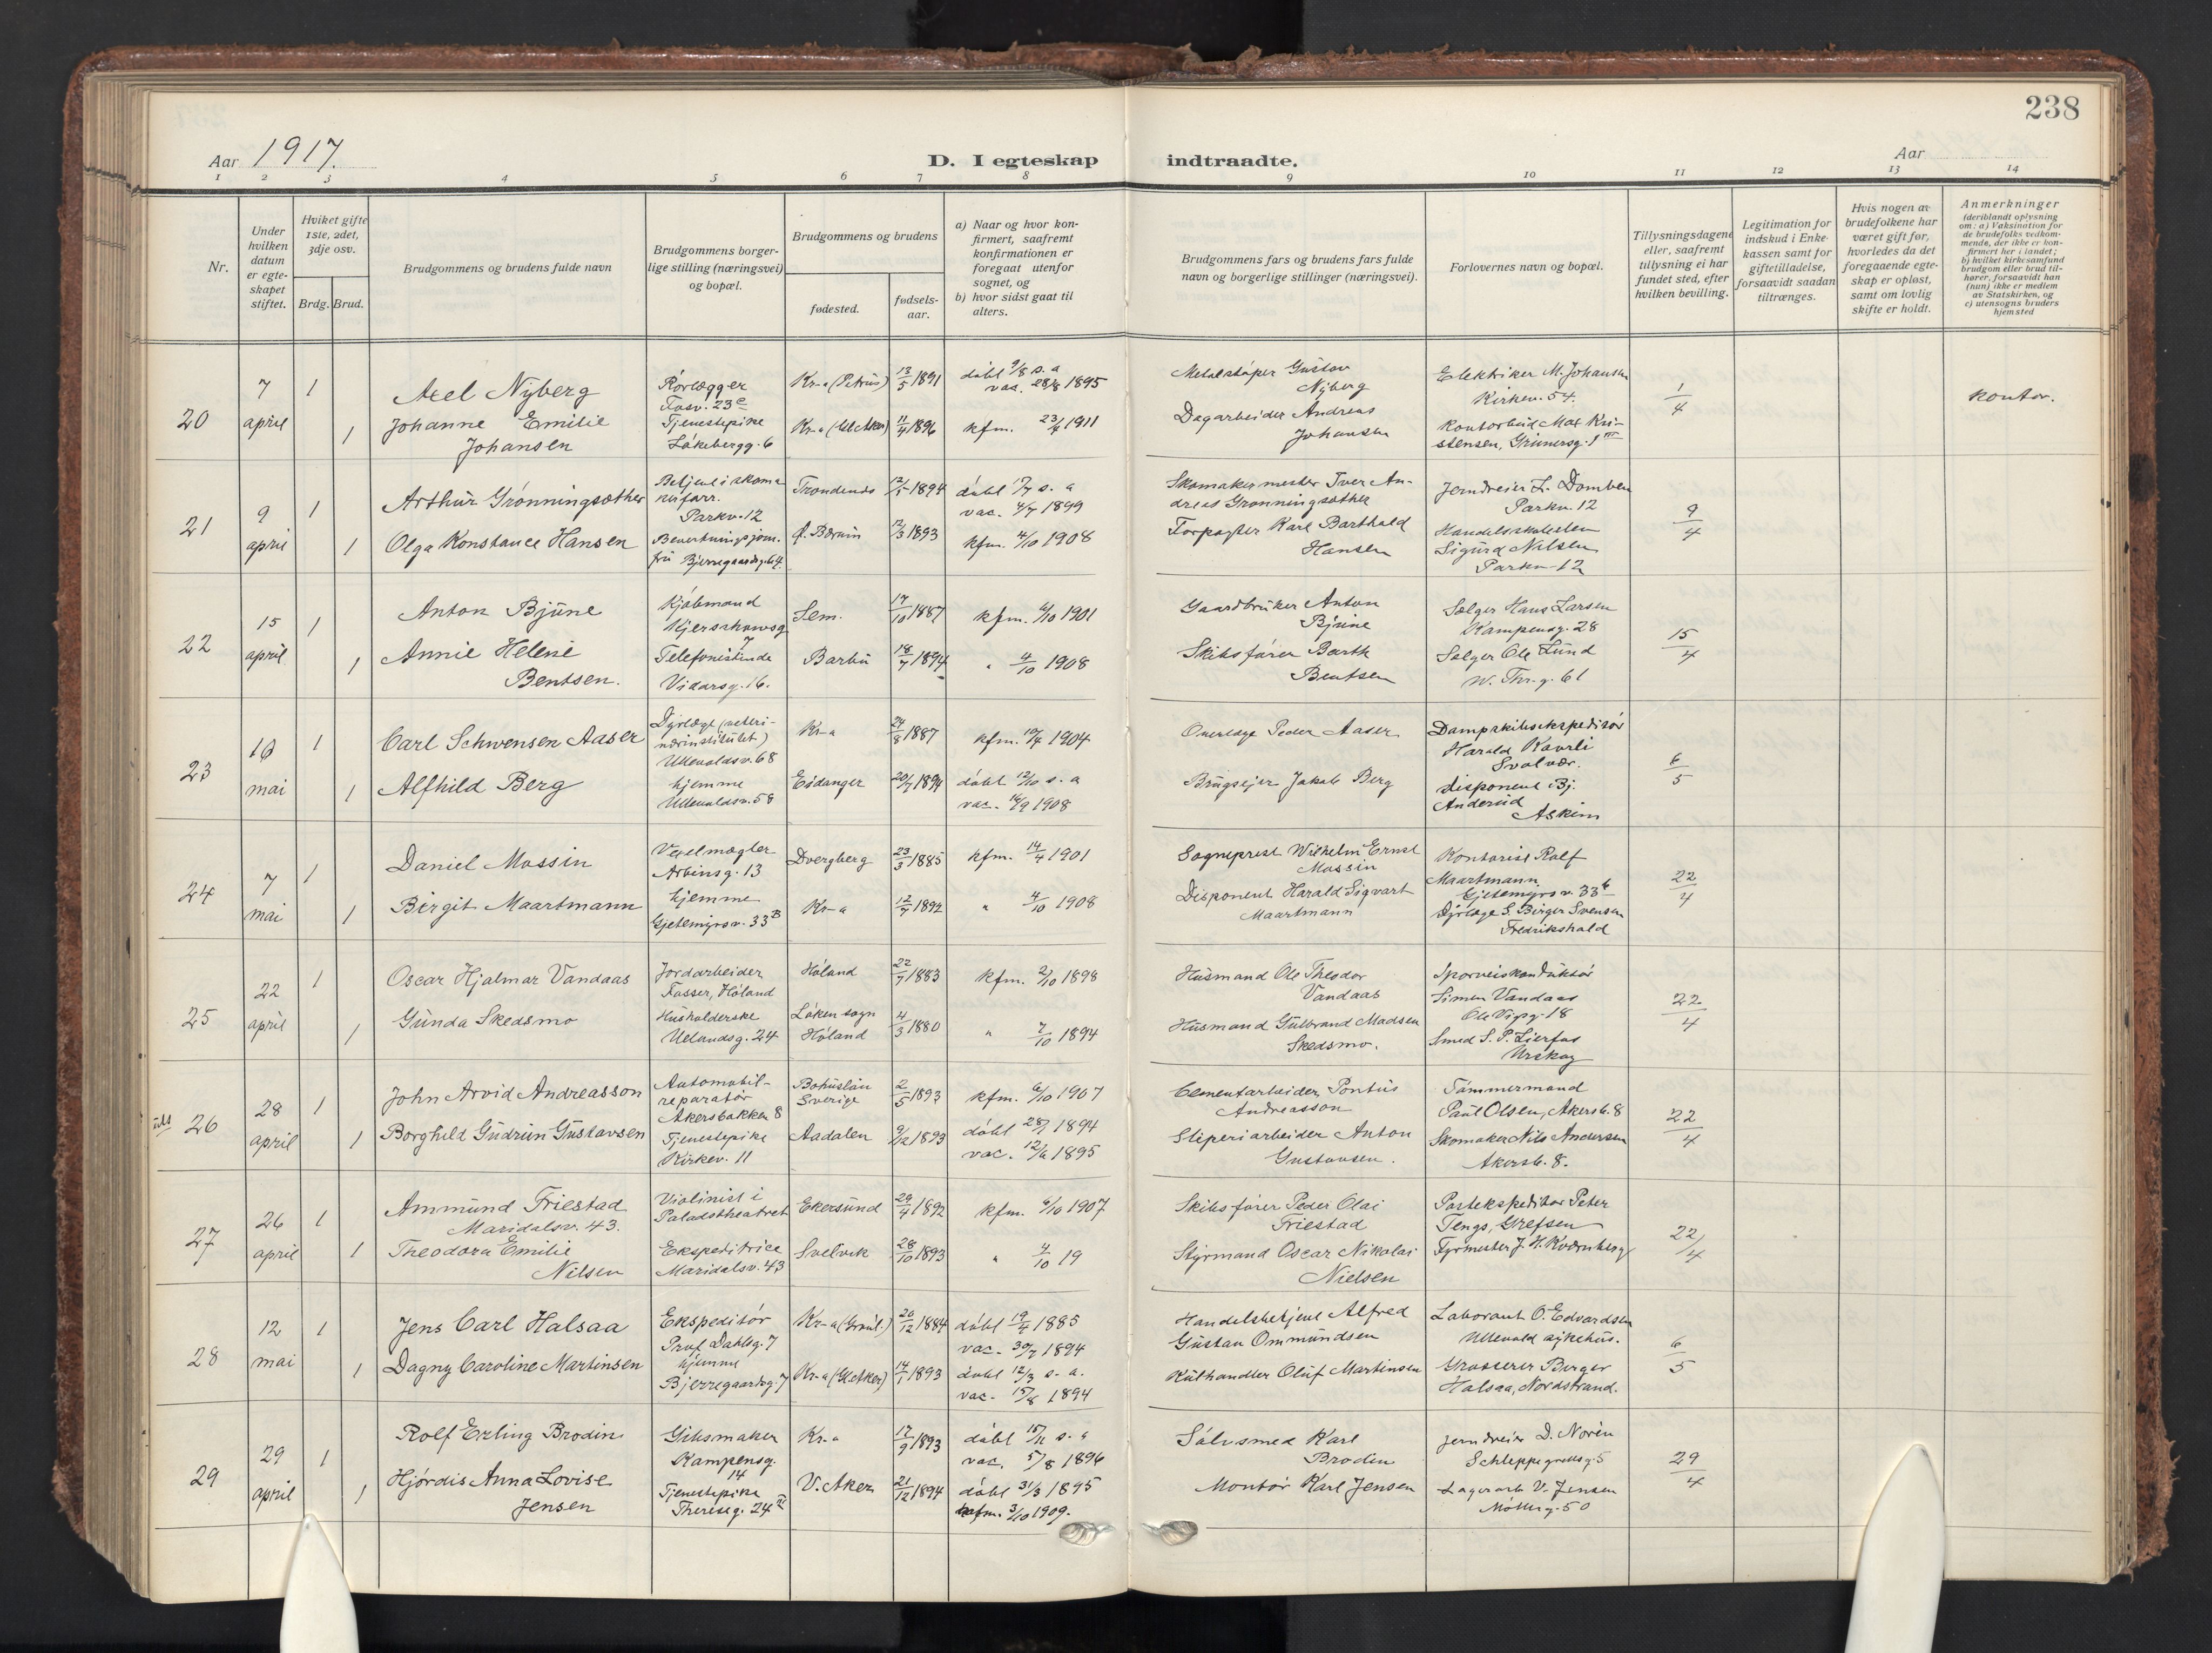 238
Aar 1917.
D. I egteskap indtraadte.
Aar
1 2 3 4 5 6 7 8 9 10 11 12 13 14
Nr.
Under hvilken datum er egteskapet stiftet.
Hviket gifte 1ste, 2det, 3dje osv.
Brdg. Brud.
Brudgommens og brudens fulde navn
Brudgommens borgerlige stilling (næringsvei) og bopæl.
Brudgommens og brudens
fødested.
fødselsaar.
a) Naar og hvor konfirmert, saafremt konfirmationen er foregaat utenfor sognet, og
b) hvor sidst gaat til alters.
Brudgommens fars og brudens fars fulde navn og borgerlige stillinger (næringsvei).
Forlovernes navn og bopæl.
Tillysningsdagene eller, saafremt tillysning ei har fundet sted, efter hvilken bevilling.
Legitimation for indskud i Enkekassen samt for giftetilladelse, forsaavidt saadan tiltrænges.
Hvis nogen av brudefolkene har været gift før, hvorledes da det foregaaende egteskap er opløst, samt om lovlig skifte er holdt.
Anmerkninger
(deriblandt oplysning om: a) Vaksination for de brudefolks vedkommende, der ikke er konfirmert her i landet;
b) hvilket kirkesamfund brudgom eller brud tilhører, forsaavidt han (hun) ikke er medlem av Statskirken, og
c) utensogns bruders hjemsted
20
7 april
1
Axel Nyberg
Rørlægger
Fosv. 23
Kr-a (Petrus)
13/5 1891
døbt 9/8 s. a
vac. 28/8 1895
Metalstøper Gustav
Nyberg
Elektriker M. Johansen
Kirkev. 54.
1/4
kontor.
1
Johanne Emilie
Johansen
Tjenestepike
Løkebergg. 6
1896
kfm. 1911
Dagarbeider Andreas
Johansen
Kontorbud Max Kristensen, Grünersg. 1 III
21
9 april
1
Arthur Grønningsæther
Betjent i skoma
kerforr.
Parkv. 12
1894
døbt s. a
vac. 1899
Skomakermester Iver Andreas Grønningsæther
Jerndreier
Parkv. 12
9/4
1
Olga Konstance Hansen
Bevertningsjomfru Bjerregaardsg. 64.
Ø. Bærum
12/3 1893
kfm. 4/10 1908
Forpagter Karl Barthold
Hansen
Sigurd Nilsen
Parkv. 12
22
15 april
1
Anton Bjune
Kjøbmand
Kjerschowsg
7
Sem.
17/10 1887
kfm. 6/10 1901
Gaardbruker Anton
Bjune
Sælger Hans Larsen
Kampensg. 28
15/4
1
Annie Helene
Bentsen.
Telefonistinde
Vidarsg. 16.
Barbu
18/7 1894
" 4/10 1908
Skibsfører Barth
Bentsen
Sælger Ole Lund
W. Thr. g. 61
23
10 mai
1
Carl Schwensen Aaser
Dyrlæge (veterinærinstitutet)
Ullevoldsv. 68
Kr-a
24/8 1887
kfm. 10/4 1904
Overlæge Peder Aaser
Dampskibsekspeditør
Harald Kavrli
Svolvær.
6/5
1
Alfhild Berg
hjemme
Ullevoldsv. 58
Eidanger
20/7 1894
døbt 12/10 s. a
vac. 14/9 1908
Brugsejer Jakob Berg
disponent Bj.
Anderud
Askim
24
7 mai
1
Daniel Mossin
Vexelmægler
Arbinsg. 13
Dverberg
23/3 1885
kfm. 14/4 1901
Sogneprest Wilhelm Ernst
Mossin
Kontorist Rolf
Maartmann
Gjetemyrsv. 33 b
22/4
1
Birgit Maartmann
hjemme
Gjetemyrsv. 33 B
Kr-a
12/7 1892
" 4/10 1908
Disponent Harald Sigvart
Maartmann
Dyrlæge S. Birger Svensen
Fredrikshald
25
22 april
1
Oscar Hjalmar Vandaas
Jordarbeider
Fosser, Høland
Høland
22/7 1883
kfm. 2/10 1898
Husmand Ole Theodor
Vandaas
Sporveiskonduktør
Simen Vandaas
Ole Vigsg. 18
22/4
1
Gunda Skedsmo
Husholderske
Uelandsg. 24
Løken sogn
Høland
4/3 1880
" 7/10 1894
Husmand Gulbrand Madsen
Skedsmo.
Smed S. P. Lierfos
Urskog
26
28 april
1
John Arvid Andreasson
Automobilreparatør
Akersbakken 8
Bohuslän
Sverige
2/5 1893
kfm. 6/10 1907
Cementarbeider Pontus
Andreasson
Tømmermand
Paul Olsen, Akersb. 8
22/4
1
Borghild Gudrun Gustavsen
Tjenestepike
Kirkev. 11
Aadalen
9/12 1893
døbt 28/1 1894
vac. 12/6 1895
Sliperiarbeider Anton
Gustavsen.
Skomaker Nils Andersen
Akersb. 8.
27
26 april
1
Ammund Friestad
Maridalsv. 43.
Violinist i
Paladstheatret
Ekersund
29/4 1892
kfm. 6/10 1907
Skibsfører Peder Olai
Friestad
Postekspeditør Peter
Tengs, Grefsen
22/4
1
Theodora Emilie
Nilsen
Ekspeditrice
Maridalsv. 43
Svelvik
28/10 1893
" 4/10 19
Styrmand Oscar Nikolai
Nielsen
Fyrmester J. H. Kvernberg
28
12 mai
1
Jens Carl Halsaa
Ekspeditør
Prof. Dahlsg. 7
Kr-a
26/12 1884
døbt 19/4 1885
vac. 30/7 1894
Handelsbetjent Alfred
Gustav Ommundsen
Laborant O. Edvardsen
Ullevold sykehus.
6/5
1
Dagny Caroline Martinsen
hjemme
Bjerregaardsg. 7
Kr-a
14/1 1893
døbt 12/3 s. a.
vac. 15/8 1894
Kulhandler Oluf Martinsen
Grosserer Birger
Halsaa, Nordstrand.
29
29 april
1
Rolf Erling Brodin
Gibsmaker
Kampensg.
14
Kr-a
17/9 1893
døbt 15/11 s. a
vac. 5/8 1896
Sølvsmed Karl
Brodin
Jerndreier D. Norén
Schleppegrellsg. 5
29/4
1
Hjørdis Anna Lovise
Jensen
Tjenestepike
Theresesg. 24
V. Aker
21/12 1894
døbt 31/3 1895
kfm. 3/10 1909.
Montør Karl Jensen
Lagerarb. V. Jensen
Møllerg. 50